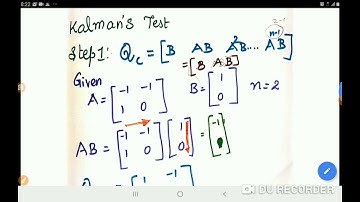 8:22
Kalman's Test
Step1: Qc = [B AB A²B.... Aⁿ⁻¹B]
2-1
= [B AB]
Given
A = [-1 -1
1 0] B = [1
0] n=2
AB = [-1 -1
1 0] [1
0] = [-1
1]
[1 -1
DU RECORDER